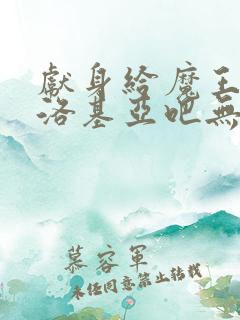 獻身給魔王
洛基亞吧無
慕容軍
未经同意禁止转载